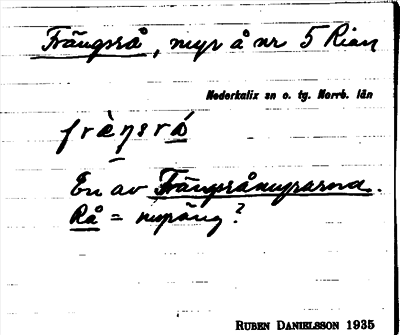 Trängsrå, myr å nr 5 Rian
Nederkalix sn o. tg. Norrb. län
frὲŋsrá
En av Trängsråmyrarna.
Rå = myräng?
RUBEN DANIELSSON 1935